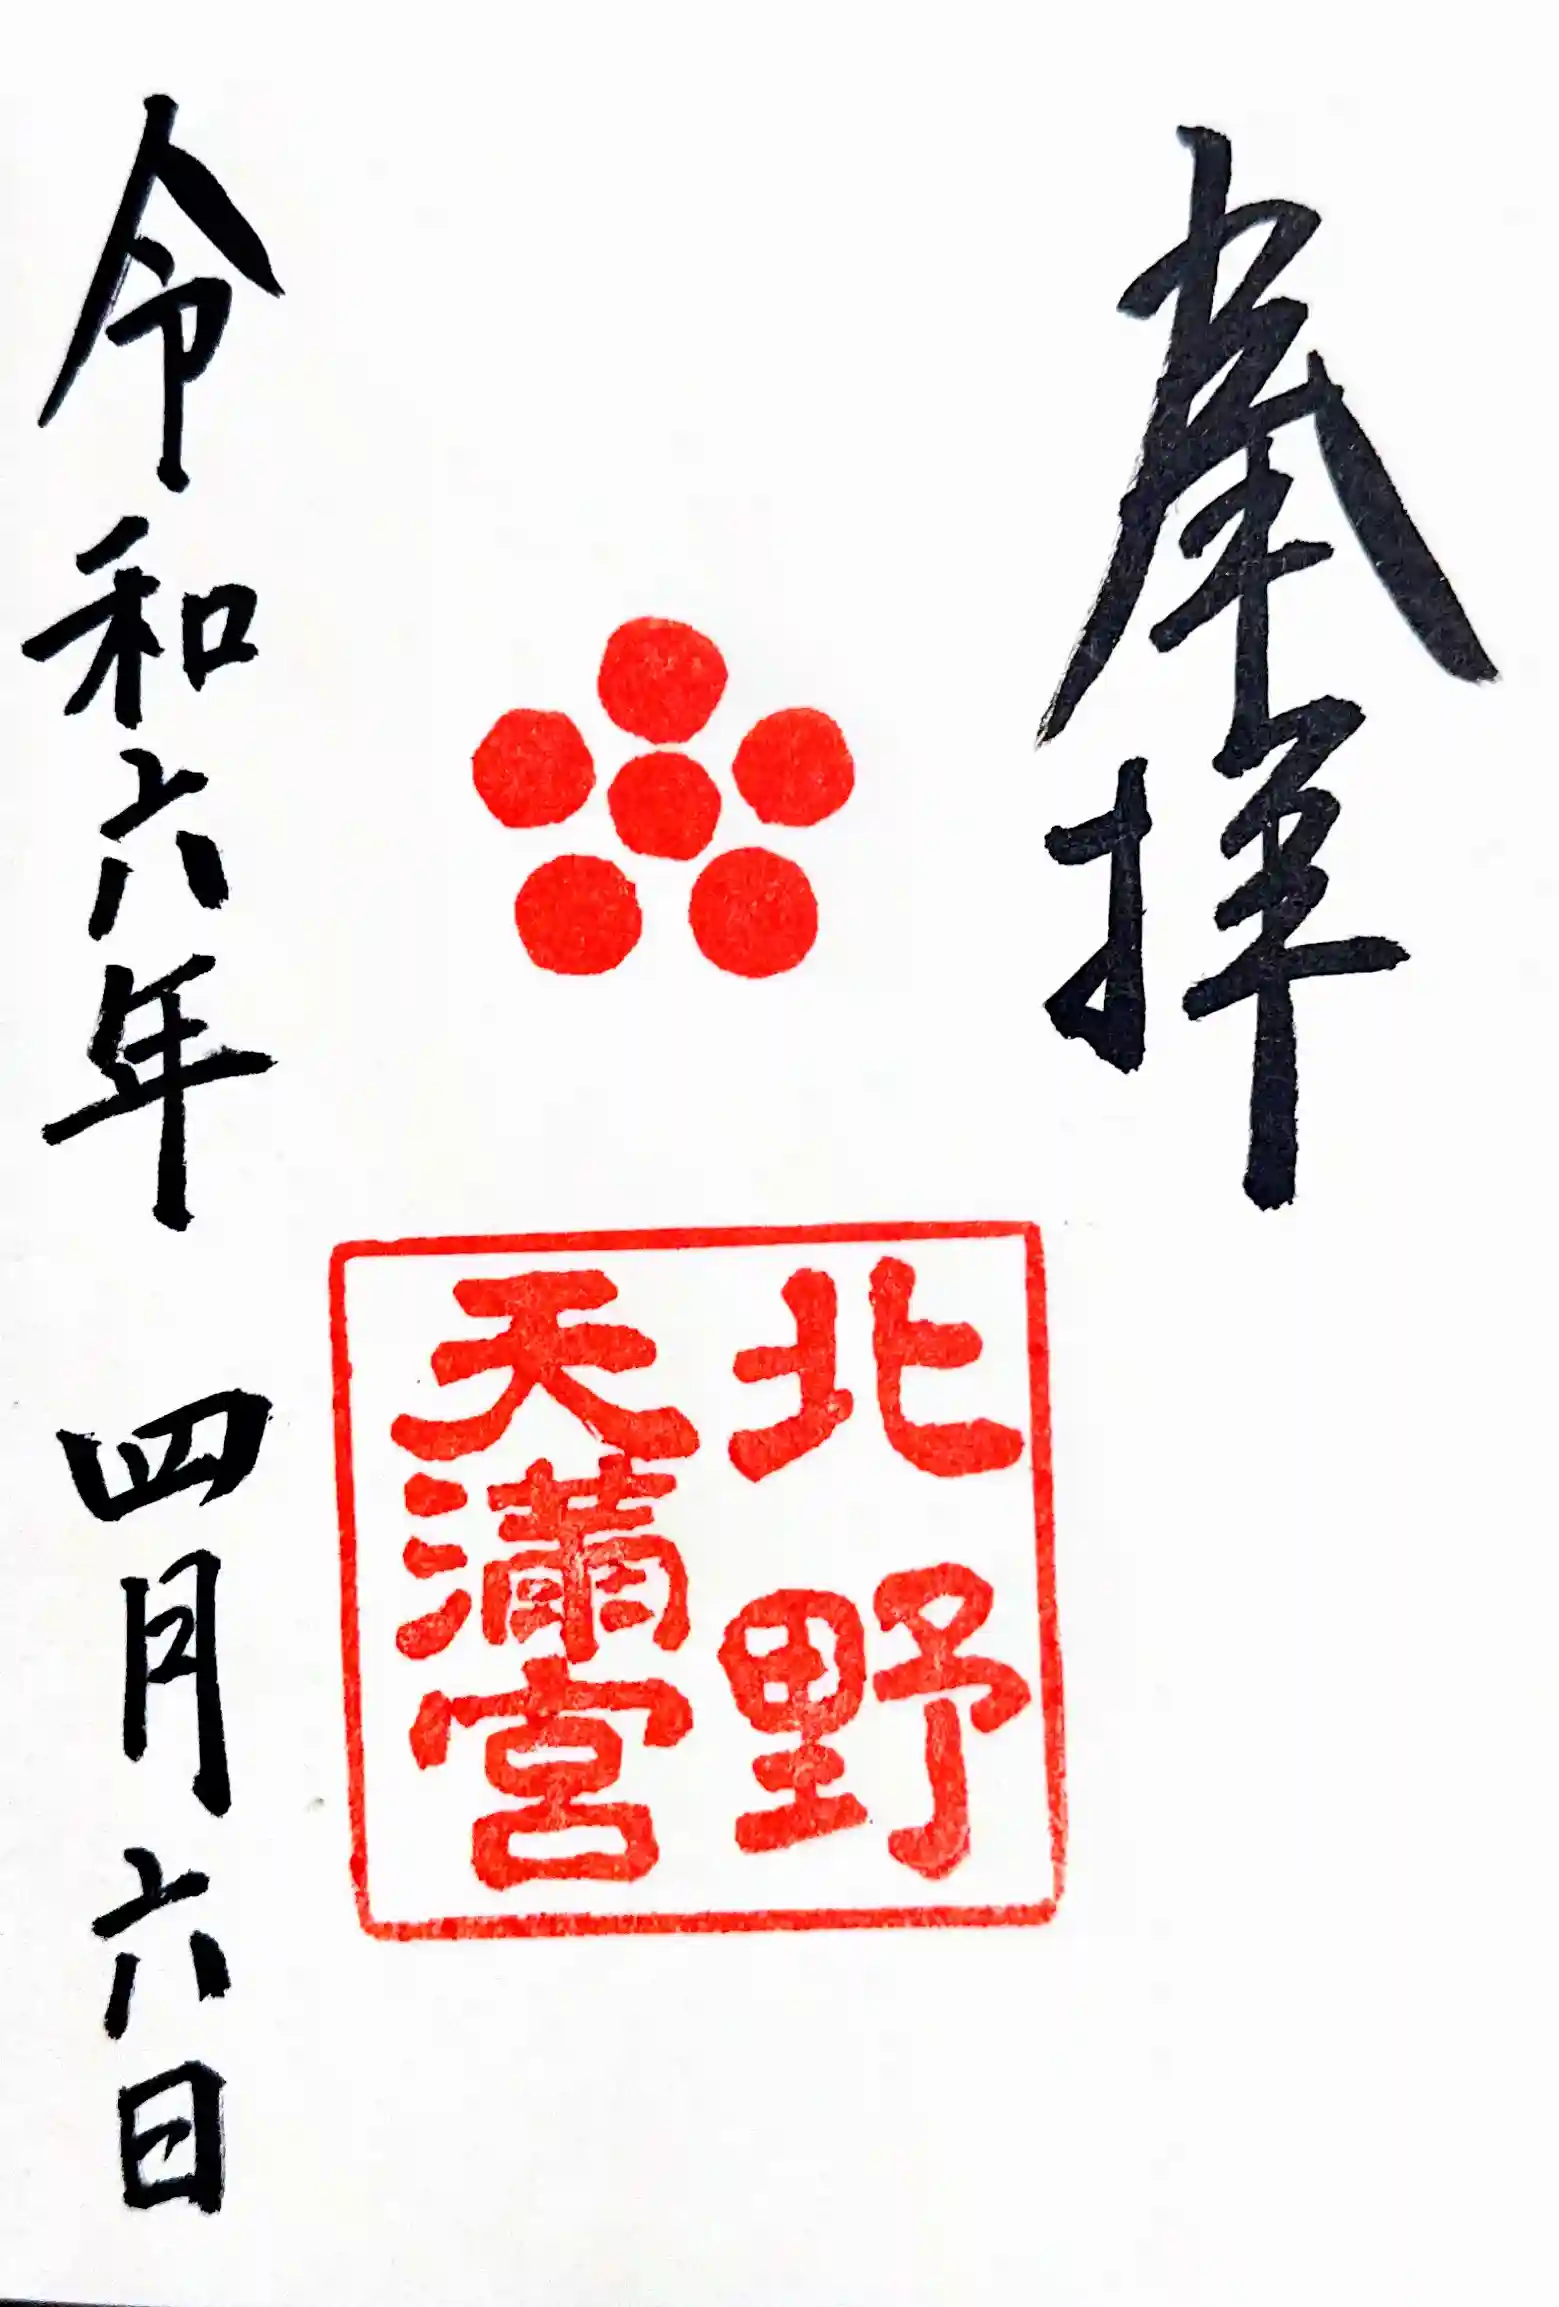 奉拝
北野
天満宮
令和六年 四月六日